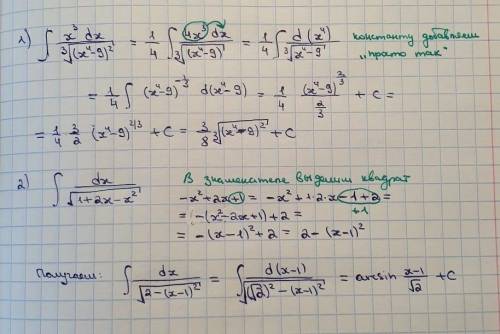 1) ∫ x³ dx / ∛(x⁴-9)² = 1/4 ∫ 4x³ dx / ∛(x⁴-9) = 1/4 ∫ d(x⁴) / ∛(x⁴-9) константу добавляем „просто так"
= 1/4 ∫ (x⁴-9)^(-1/3) d(x⁴-9) = 1/4 (x⁴-9)^(2/3) / (2/3) + C =
= 1/4 3/2 (x⁴-9)^(2/3) + C = 3/8 ∛(x⁴-9)² + C
2) ∫ dx / √(1+2x-x²) В знаменателе выделим квадрат
-x²+2x+1 = -x²+1·2·x-1+2 =
+1
= -(x²-2x+1)+2 =
= -(x-1)²+2 = 2-(x-1)²
Получаем: ∫ dx / √(2-(x-1)²) = ∫ d(x-1) / √((√2)²-(x-1)²) = arcsin (x-1)/√2 + C